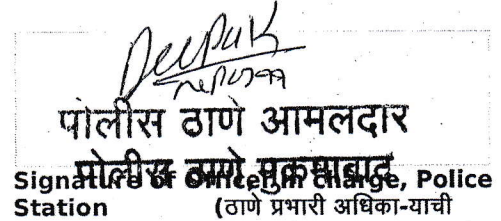 Deepak
पोलीस ठाणे आमलदार
पोलीस ठाणे मुक्रमाबाद
Signature of Officer in charge, Police
Station (ठाणे प्रभारी अधिका-याची